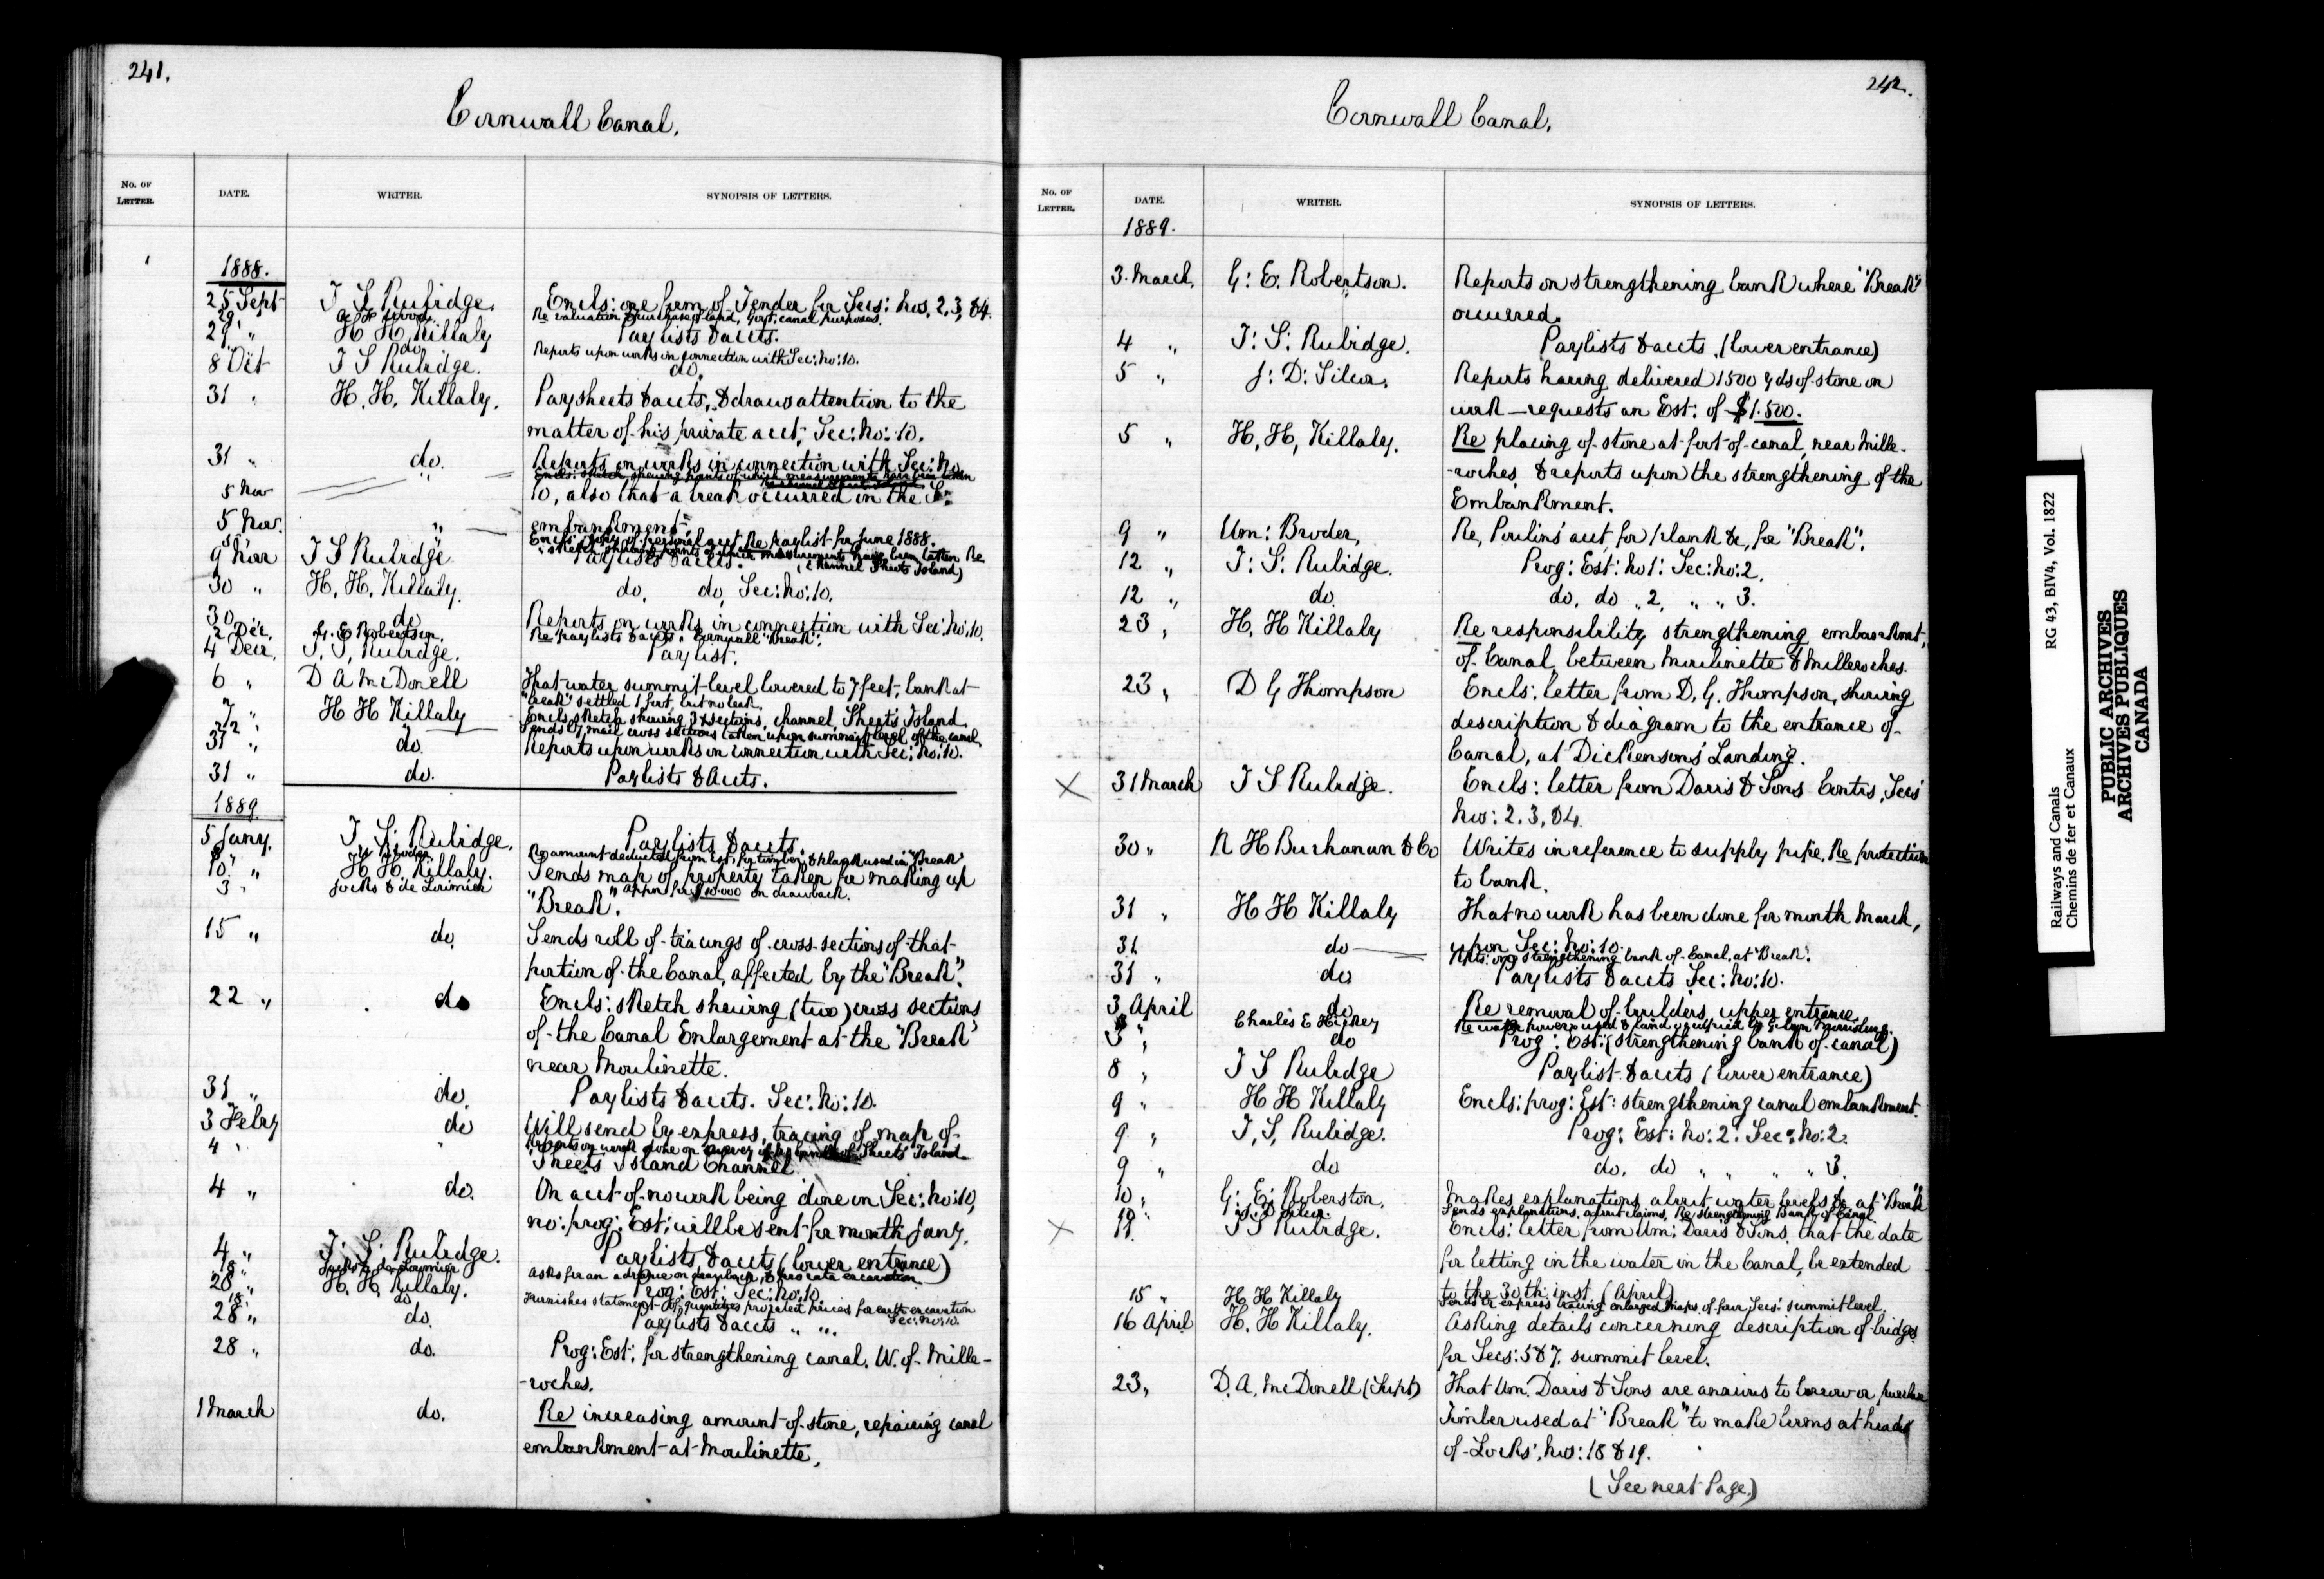 241.
Cornwall Canal.
No. OF LETTER.
DATE.
WRITER.
SYNOPSIS OF LETTERS.
1888.
25 Sept T S Rubidge. Encls: one form of Tender for Secs: Nos. 2, 3, & 4.
29 " Re valuation & purchase of land, Govt. canal purposes.
29 " H H Killaly Paylists & accts.
do Reports upon works in connection with Sec: No: 10.
8 Oct T S Rubidge. do.
31 " H. H. Killaly. Paysheets & accts, & draws attention to the
matter of his private acct, Sec: No: 10.
31 " do. Reports on works in connection with Sec: No
5 Nov " Encls: sketch shewing points of which measurements have been taken
10, also that a break occurred in the S:
embankment.
5 Nov. " Encls: copy of personal acct Re paylist for June 1888.
5 " " sketch shewing points of which measurements have been taken Re
(Channel Sheets Island)
9 Nov T S Rubidge Paylists & accts.
30 " H. H. Killaly. do, do, Sec: No: 10.
30 " do Reports on works in connection with Sec: No: 10.
2 Dec. G. E Robertson. Re paylists & accts. Cornwall "Break".
4 Decr. T. S. Rubidge. Paylist.
6 " D A McDonell That water summit level lowered to 7 feet, bank at
"break" settled 1 foot, but no leak.
7 " H H Killaly Encls sketch shewing 3 x sections, channel, Sheets Island
22 " Sends by mail cross sections taken upon summit level of the canal
31 " do. Reports upon works in connection with Sec: No: 10.
31 " do. Paylists & Accts.
1889.
5 Jany. T. S. Rubidge. Paylists & accts.
8 " W Broder Re amount deducted from Est: for timber & plank used in "Break"
10 " H H. Killaly. Sends map of property taken for making up
3 " Jocks & de Lorimier Appn for $10.000 on drawback.
"Break".
15 " do. Sends roll of tracings of cross-sections of that
portion of the Canal, affected by the "Break".
22 " do Encls: sketch shewing (two) cross sections
of the Canal Enlargement at the "Break"
near Moulinette.
31 " do. Paylists & accts. Sec: No: 10.
3 Febry do Will send by express, tracing of map of
4 " " Reports on work done on survey of Sheets Island
Sheets Island Channel.
4 " do. On acct of no work being done on Sec: No: 10,
no: prog: Est: will be sent for month Jany.
4 " T. S. Rubidge. Paylists & accts (lower entrance)
18 " Jocks & de Lorimier Asks for an advance on drawback, & pro rata excavation
28 " H. H. Killaly. Prog: Est: Sec: No: 10
18 " do Furnishes statement of quantities pro select prices for earth excavation
Sec: No: 10.
28 " do. Paylists & accts " ".
28 " do. Prog: Est: for strengthening canal, W. of Mille-
-roches.
1 March do. Re increasing amount of stone, repairing canal
embankment at Moulinette.
242.
Cornwall Canal.
No. OF LETTER.
DATE.
WRITER.
SYNOPSIS OF LETTERS.
1889.
3. March, G: E. Robertson. Reports on strengthening bank where "Break"
occurred.
4 " T: S: Rubidge. Paylists & accts. (lower entrance)
5 " J: D: Silcox. Reports having delivered 1500 yds of stone on
work — requests an Est: of $1.500.
5 " H, H, Killaly. Re placing of stone at foot of canal, near Mille-
-roches, & reports upon the strengthening of the
Embankment.
9 " Wm: Broder, Re, Poulin's acct, for plank &c, for "Break".
12 " T: S: Rubidge. Prog: Est: No 1: Sec: No: 2.
12 " do. do. do " 2, " " 3.
23 " H. H Killaly Re responsibility strengthening embankmt,
of Canal, between Moulinette & Milleroches.
23 " D G Thompson Encls: letter from D. G. Thompson, showing
description & diagram to the entrance of
Canal, at Dickenson's Landing.
X 31 March T S Rubidge. Encls: letter from Davis & Sons Contrs, Secs'
Nos: 2. 3, & 4.
30 " R H Buchanan & Co Writes in reference to supply pipe, Re protection
to bank.
31 " H H Killaly That no work has been done for month March,
upon Sec: No: 10.
31 do Rpts. on strengthening bank of Canal, at "Break".
31 " do Paylists & accts Sec: No: 10.
3 April do Re removal of boulders, upper entrance
" Charles E Hickey Re water power used & land occupied by Gillum Manufacturing.
3 " do Prog: Est: (strengthening bank of canal)
8 " T S Rubidge Paylist & accts (lower entrance)
9 " H H Killaly Encls: prog: Est: strengthening canal embankment.
9 " T, S, Rubidge. Prog: Est: No: 2: Sec: No: 2.
9 " do do. do " " " " 3.
10 " G: E: Roberston. Makes explanations about water levels &c at "Break"
" J. D Silcox. Sends explanations, about claims, Re strengthening Bank of Canal.
X 11. T S Rubidge. Encls: letter from Wm: Davis & Sons, that the date
for letting in the water in the Canal, be extended
to the 30th inst. (April)
15 " H H Killaly Sends by express tracing enlarged maps of four Secs: summit level.
16 April H. H Killaly. Asking details concerning description of bridges
for Secs: 5 & 7. summit level.
23, D. A. McDonell (Supt) That Wm. Davis & Sons are anxious to borrow or purchase
Timber used at "Break" to make berms at heads
of Locks, Nos: 18 & 19.
(See next Page.)
Railways and Canals RG 43, BIV4, Vol. 1822
Chemins de fer et Canaux
PUBLIC ARCHIVES
ARCHIVES PUBLIQUES
CANADA